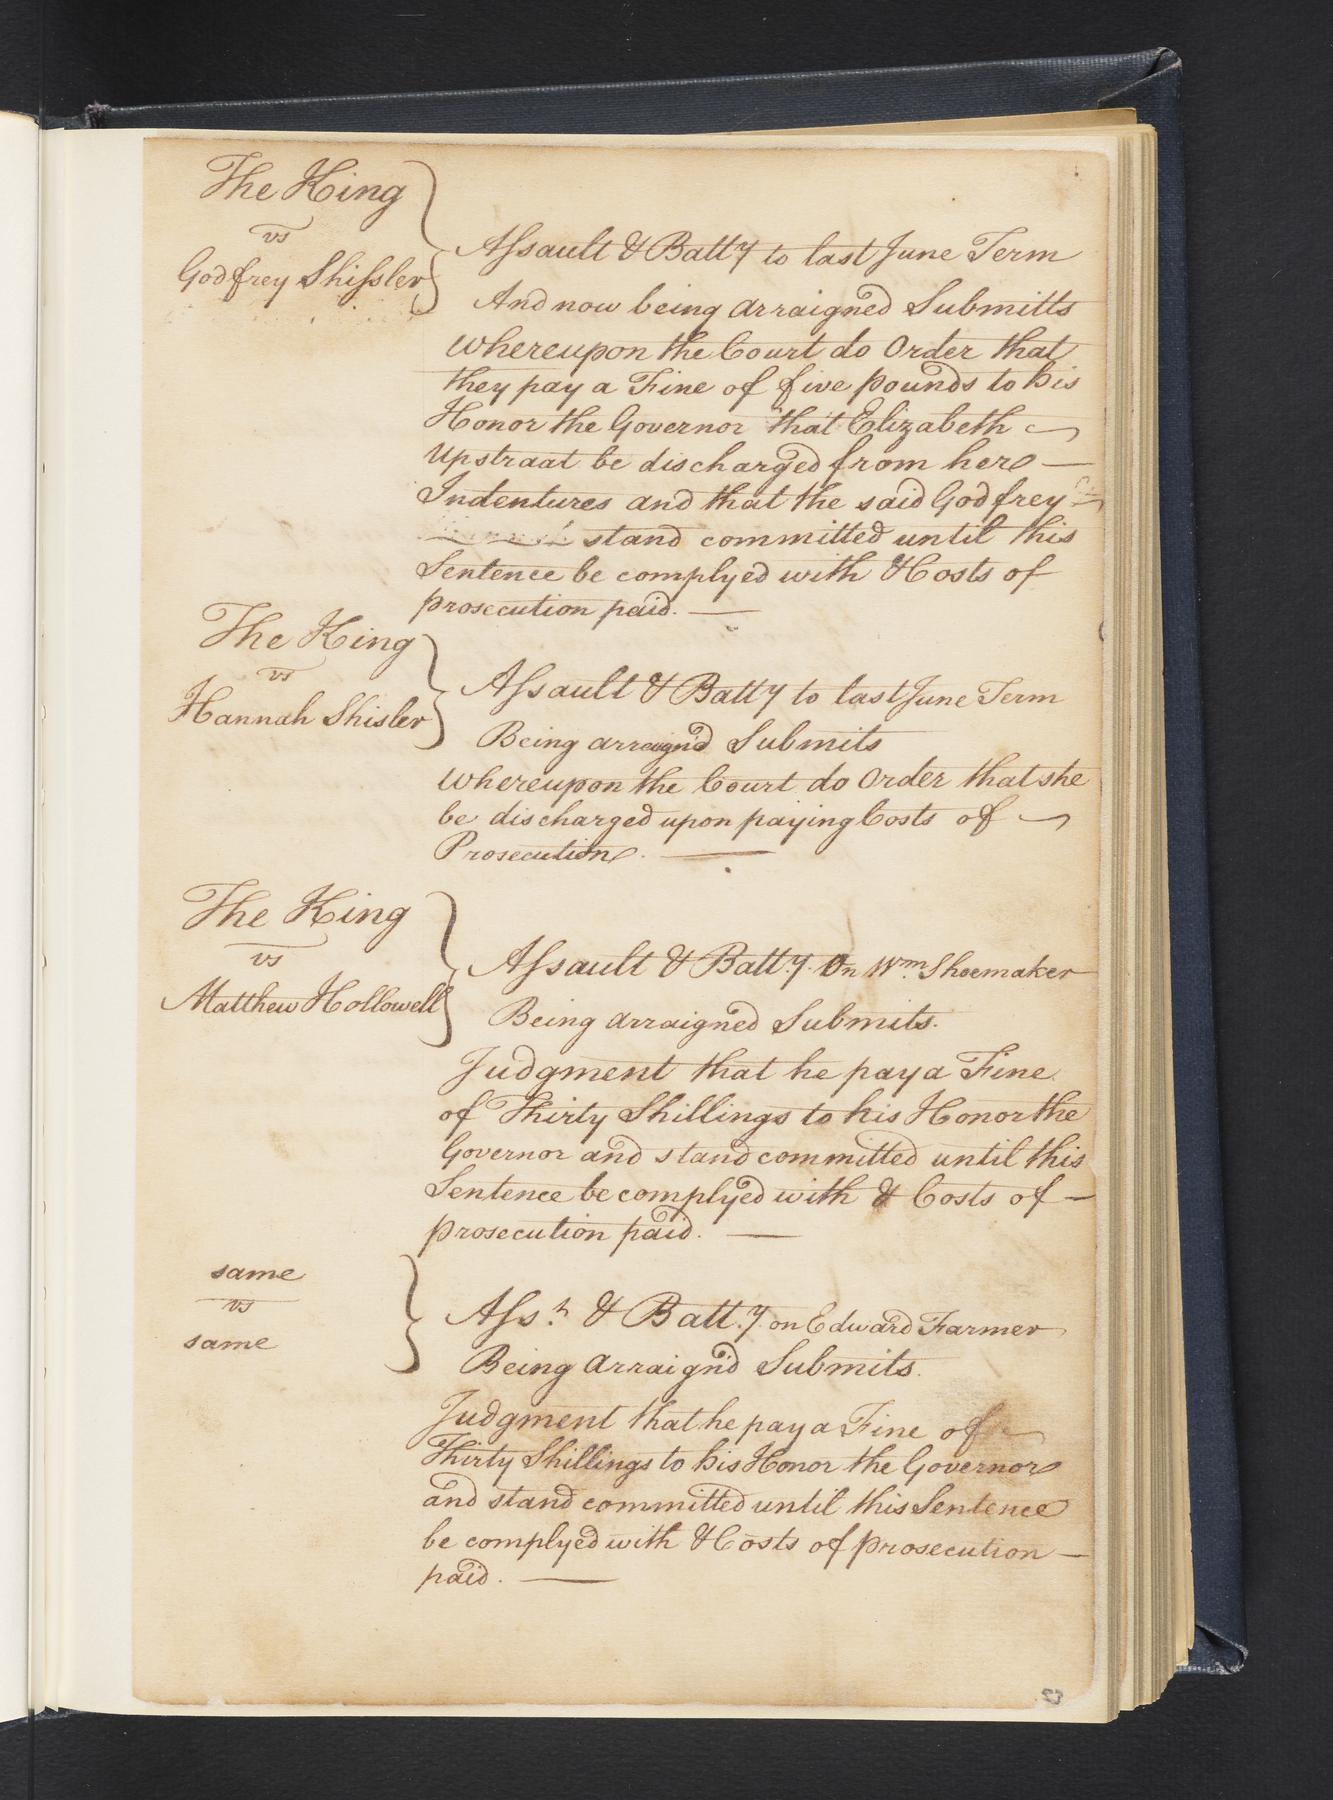 The King
vs
Godfrey Shissler
Assault & Batty to last June Term
And now being arraigned Submitts
whereupon the Court do Order that
they pay a Fine of five pounds to his
Honor the Governor that Elizabeth
Upstraat be discharged from here
Indentures and that the said Godfrey
stand committed until this
Sentence be complyed with & Costs of
prosecution paid.
The King
vs
Hannah Shisler
Assault & Batty to last June Term
Being arraign'd Submits
whereupon the Court do Order that she
be discharged upon paying Costs of
Prosecution.
The King
vs
Matthew Hollowell
Assault & Batt.y. On Wm. Shoemaker
Being arraigned Submits.
Judgment that he pay a Fine
of Thirty Shillings to his Honor the
Governor and stand committed until this
Sentence be complyed with & Costs of
prosecution paid.
same
vs
same
Ass.t & Batt.y on Edward Farmer
Being arraign'd Submits.
Judgment that he pay a Fine of
Thirty Shillings to his Honor the Governor
and stand committed until this Sentence
be complyed with & Costs of prosecution
paid.